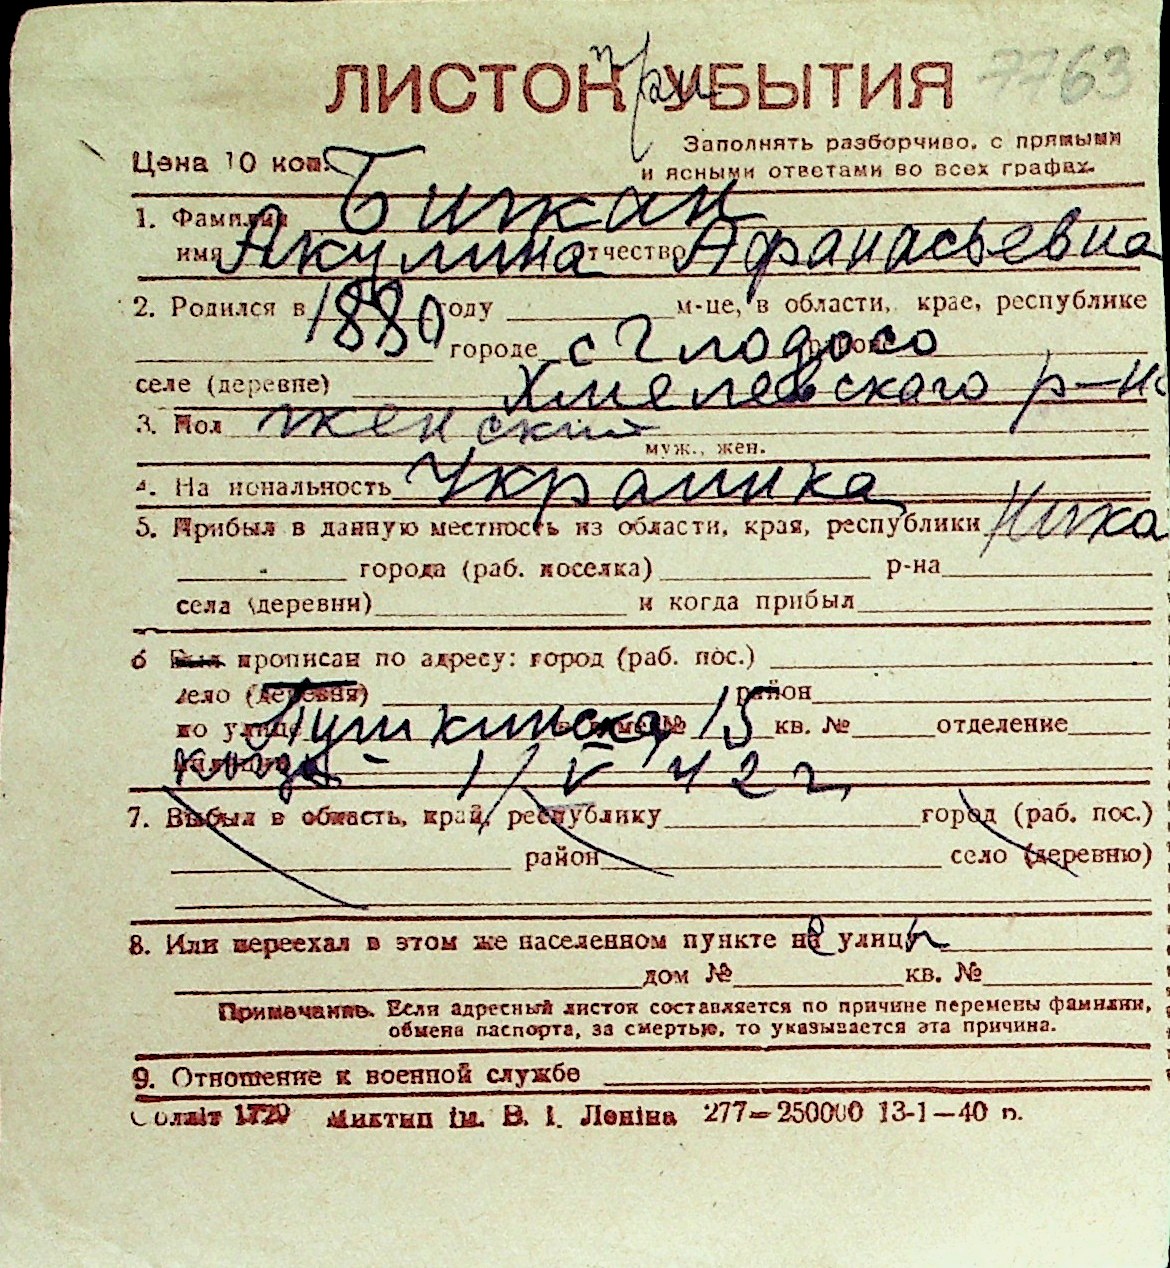 7763
ЛИСТОК УБЫТИЯ
при
Цена 10 коп.
Заполнять разборчиво, с прямыми
и ясными ответами во всех графах.
1. Фамилия Бижан
имя Акулина отчество Афанасьевна
2. Родился в 1880 году м-це, в области, крае, республике
городе с Глодосо районе
селе (деревне) Хмелевского р-на
3. Пол женский
муж., жен.
4. Национальность Украинка
5. Прибыл в данную местность из области, края, республики
города (раб. поселка) р-на
села (деревни) и когда прибыл
6 Был прописан по адресу: город (раб. пос.)
село (деревня) район
по улице Пушкинска дом № 15 кв. № отделение
когда - 1/V 42 г.
7. Выбыл в область, край, республику город (раб. пос.)
район село (деревню)
8. Или переехал в этом же населенном пункте на улицу
дом № кв. №
Примечание. Если адресный листок составляется по причине перемены фамилии,
обмена паспорта, за смертью, то указывается эта причина.
9. Отношение к военной службе
Облліт 1729 Миктип ім. В. І. Леніна 277—250000 13-1—40 п.